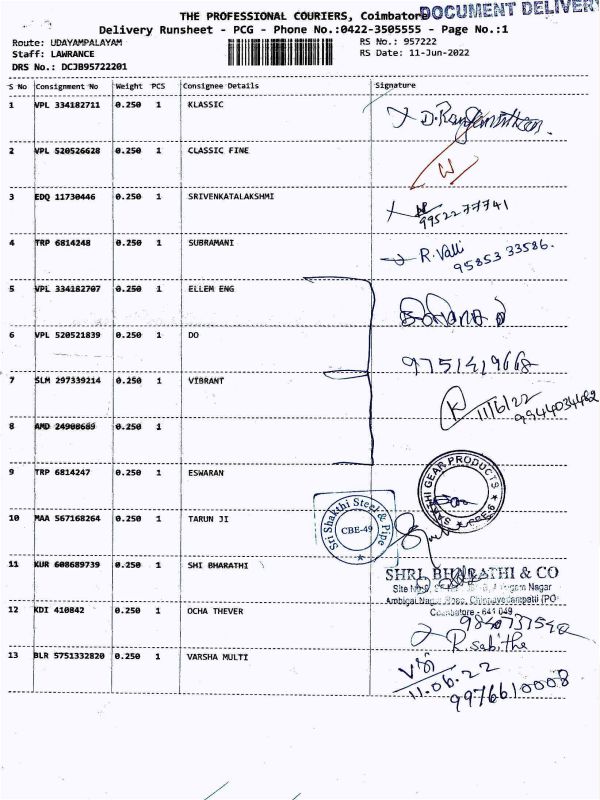 THE PROFESSIONAL COURIERS, Coimbatore
DOCUMENT DELIVERY
Delivery Runsheet - PCG - Phone No.:0422-3505555 - Page No.:1
Route: UDAYAMPALAYAM
RS No.: 957222
Staff: LAWRANCE
RS Date: 11-Jun-2022
DRS No.: DCJB95722201
S No Consignment No Weight PCS Consignee Details Signature
1 VPL 334182711 0.250 1 KLASSIC
2 VPL 520526628 0.250 1 CLASSIC FINE
3 EDQ 11730446 0.250 1 SRIVENKATALAKSHMI
9952277741
4 TRP 6814248 0.250 1 SUBRAMANI R. Valli
95853 33586.
5 VPL 334182707 0.250 1 ELLEM ENG
6 VPL 520521839 0.250 1 DO
9751419668
7 SLM 297339214 0.250 1 VIBRANT
K 11/6/22
9944034462
8 AMD 24908689 0.250 1
9 TRP 6814247 0.250 1 ESWARAN
SAKTHI GEAR PRODUCTS
CBE-6
10 MAA 567168264 0.250 1 TARUN JI
Sri Shakthi Steel & Pipe
CBE-49
11 KUR 608689739 0.250 1 SHI BHARATHI
SHRI BHARATHI & CO
Nagar
Coimbatore - 641 049
12 KDI 410842 0.250 1 OCHA THEVER
R. Sabitha
13 BLR 5751332820 0.250 1 VARSHA MULTI
11.06.22
9976610008